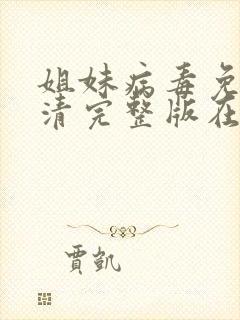 姐妹病毒免
清完整版在
贾凯